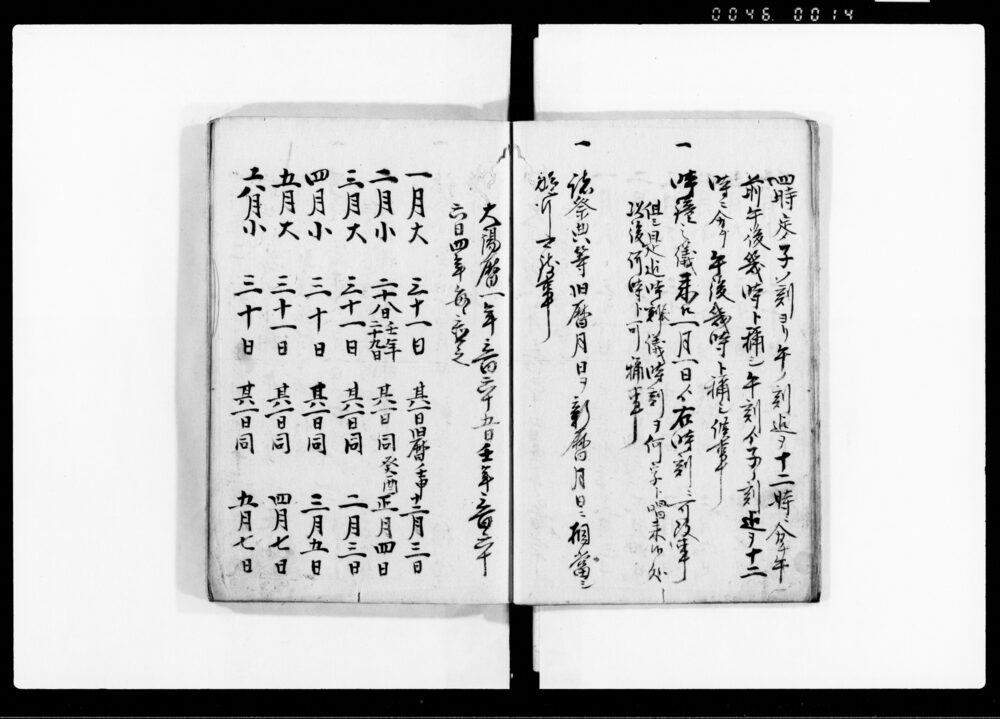 0046 0014
四時度子ノ刻ヨリ午ノ刻迄ヲ十二時ニ分チ午
前午後幾時ト称シ午刻ヨリ子ノ刻迄ヲ十二
時ニ分チ午後幾時ト称シ候事
一 時鐘之儀来ル一月一日ヨリ右時刻ニ可改事
但是迄時辰儀時刻ヲ何字ト唱来候処
以後何時ト可称事
一 諸祭典等旧暦月日ヲ新暦月日ニ相当シ
施行可致事
太陽暦一年三百六十五日閏年三百六十
六日四年毎ニ置之
一月大 三十一日 其一日旧暦壬申十二月三日
二月小 二十八日 閏年二十九日 其一日同癸酉正月四日
三月大 三十一日 其一日同 二月三日
四月小 三十日 其一日同 三月五日
五月大 三十一日 其一日同 四月七日
六月小 三十日 其一日同 五月七日